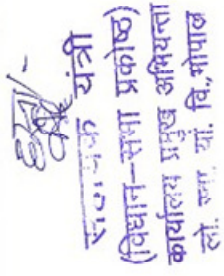 हस्ता/-
सहायक यंत्री
(विधान-सभा प्रकोष्ठ)
कार्यालय प्रमुख अभियन्ता
लो. स्वा. यां. वि., भोपाल